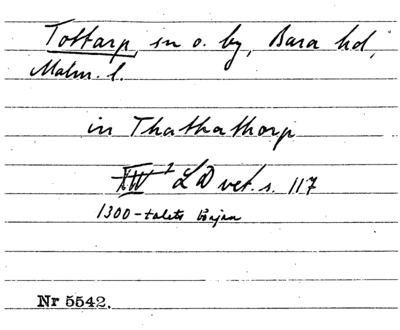 Tottarp, sn o. by, Bara hd,
Malm. l.
in Thathathorp
LD vet. s. 117
1300-talets början
Nr 5542.